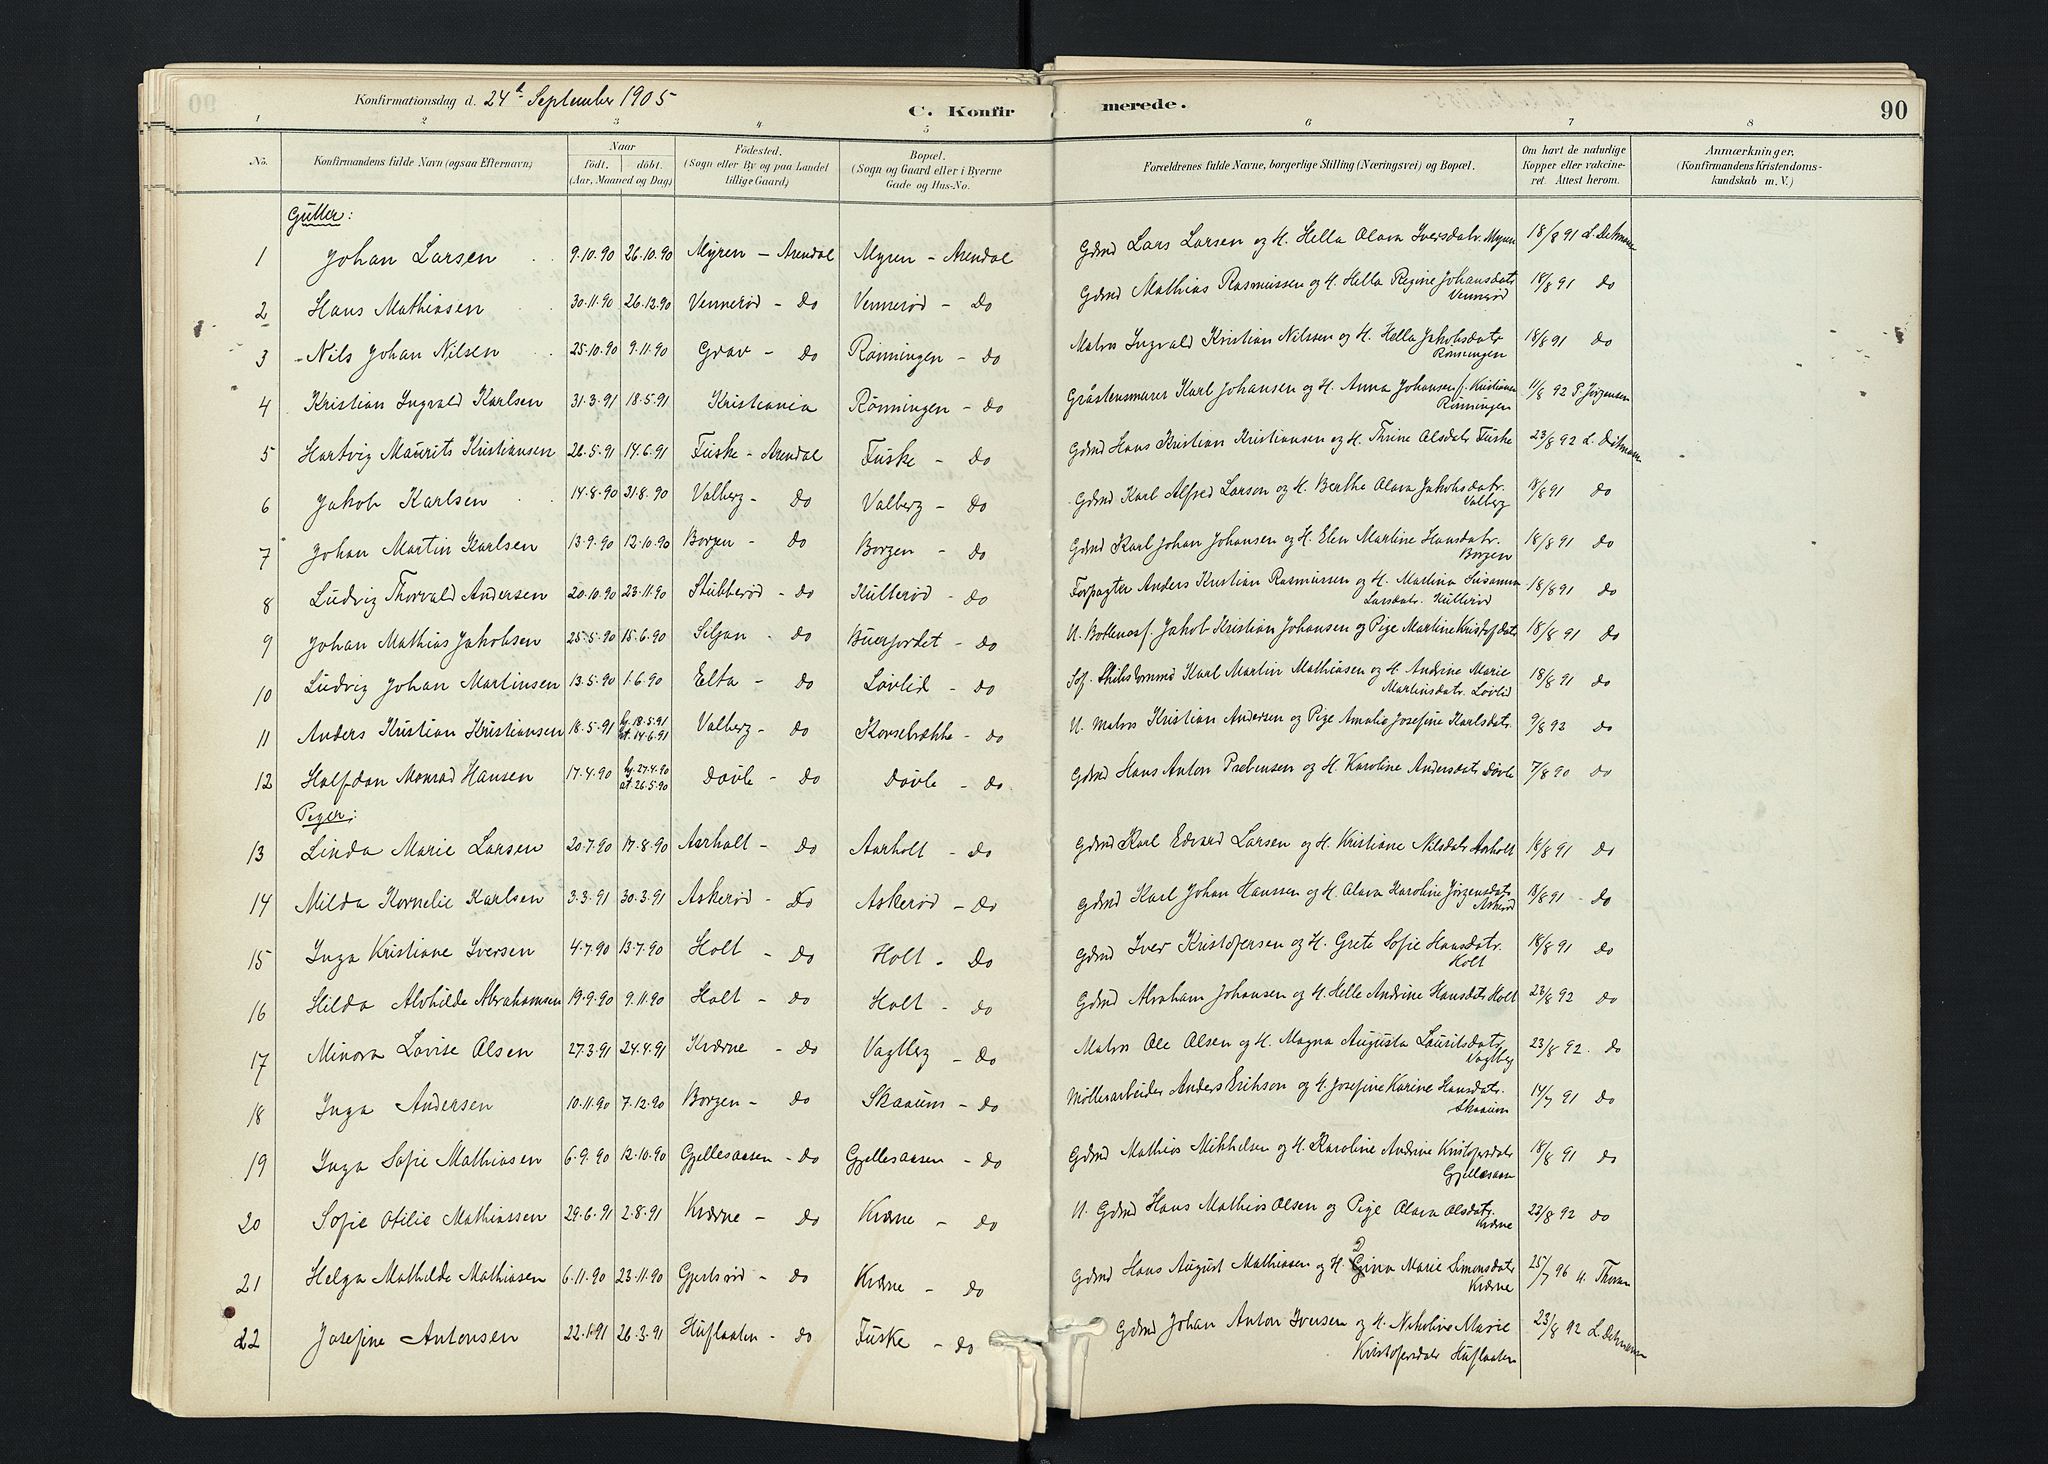 Konfirmationsdag d. 24de September 1905
C. Konfirmerede.
90
1 2 3 4 5 6 7 8
No.
Konfirmandens fulde Navn (ogsaa Efternavn)
Naar
födt. döbt.
(Aar, Maaned og Dag)
Födested.
(Sogn eller By og paa Landet
tillige Gaard)
Bopæl.
(Sogn og Gaard eller i Byerne
Gade og Hus-No.
Forældrenes fulde Navne, borgerlige Stilling (Næringsvei) og Bopæl.
Om havt de naturlige
Kopper eller vakcine-
ret. Attest herom.
Anmærkninger,
(Konfirmandens Kristendoms-
kundskab m. V.)
Gutter:
1 Johan Larsen 9.10.90 26.10.90 Myren - Arendal Myren - Arendal Gdmd Lars Larsen og H. Hella Olava Iversdatr. Myren 18/8 91 L. Ditmann
2 Hans Mathiasen 30.11.90 26.12.90 Vennerød - do Vennerød - do Gdmd Mathias Rasmussen og H. Hella Regine Johansdatr 18/8 91 do
Vennerød
3 Nils Johan Nilsen 25.10.90 9.11.90 Grav - do Rønningen - do Matros Ingvald Kristian Nilssen og H. Hella Jakobsdatr 18/8 91 do
Rønningen
4 Kristian Ingvald Karlsen 31.3.91 18.5.91 Kristiania Rønningen - do Gråstensmurer Karl Johansen og H. Anna Johansen f. Kristiansen 11/8 92 P. Jörgensen
Rønningen
5 Hartvig Maurits Kristiansen 26.5.91 14.6.91 Fuske - Arendal Fuske - do Gdmd Hans Kristian Kristiansen og H. Thrine Olsdatr Fuske 23/8 92 L. Ditmann
6 Jakob Karlsen 14.8.90 31.8.90 Valberg - do Valberg - do Gdmd Karl Alfred Larson og H. Berthe Olava Jakobsdatr. 18/8 91 do
Valberg
7 Johan Martin Karlsen 13.9.90 12.10.90 Borgen - do Borgen - do Gdmd Karl Johan Johansen og H. Elen Martine Hansdatr. 18/8 91 do
Borgen
8 Ludvig Thorvald Andersen 20.10.90 23.11.90 Stubberød - do Kullerød - do Forpagter Anders Kristian Rasmussen og H. Martina Susanna 18/8 91 do
Larsdatr. Kullerød
9 Johan Mathias Jakobsen 25.5.90 15.6.90 Siljan - do Buerjordet - do U. Jakob Kristian Johansen og Pige Martine Kristofdatr 18/8 91 do
10 Ludvig Johan Martinsen 13.5.90 1.6.90 Elta - do Løvlid - do Sof. Karl Martin Mathiasen og H. Andrine Marie 18/8 91 do
Martinsdatr. Løvlid
11 Anders Kristian Kristiansen 18.5.91 hj. 18.5.91 Valberg - do Korsebække - do U. Matros Kristian Andersen og Pige Amalie Josefine Karlsdatr. 9/8 92 do
st. 14.6.91
12 Halfdan Monrad Hansen 17.4.90 hj. 27.4.90 Døvle - do Døvle - do Gdmd Hans Anton Prebensen og H. Karoline Andersdatr Døvle 7/8 90 do
st. 26.5.90
Piger:
13 Linda Marie Larsen 20.7.90 17.8.90 Aarholt - do Aarholt - do Gdmd Karl Edvard Larsen og H. Kristiane Nilsdatr Aarholt 18/8 91 do
14 Milda Kornelie Karlsen 3.3.91 30.3.91 Askerød - do Askerød - do Gdmd Karl Johan Hanssen og H. Olava Karoline Jørgensdatr 18/8 91 - do
Askerød
15 Inga Kristiane Iversen 4.7.90 13.7.90 Holt - do Holt - do Gdmd Iver Kristofersen og H. Grete Sofie Hansdatr. 18/8 91 do
Holt
16 Hilda Alvhilde Abrahamsen 19.9.90 9.11.90 Holt - do Holt - do Gdmd Abraham Johansen og H. Helle Andrine Hansdatr Holt 23/8 92 do
17 Minora Lovise Olsen 27.3.91 24.4.91 Kværne - do Vagtberg - do Matros Ole Olsen og H. Magna Augusta Lauritsdatr. 23/8 92. do
Vagtberg
18 Inga Andersen 10.11.90 7.12.90 Borgen - do Skaaum - do Møllerarbeider Anders Erikson og H. Josefine Karine Hansdatr. 14/7 91 do
Skaaum
19 Inga Sofie Mathiasen 6.9.90 12.10.90 Gjellesaasen - do Gjellesaasen - do Gdmd Mathias Mikkelsen og H. Karoline Andrine Kristofersdatr 18/8 91 do
Gjellesaasen
20 Sofie Otilie Mathiassen 29.6.91 2.8.91 Kværne - do Kværne - do U. Gdmd Hans Mathias Olsen og Pige Olava Olsdatr. 23/8 92 do
Kværne
21 Helga Mathilde Mathiasen 6.11.90 23.11.90 Gjerstrød - do Kværne - do Gdmd Hans August Mathiasen og H. 2 Gina Marie Simonsdatr 25/7 96 H. Thoran
Kværne
22 Josefine Antonsen 22.1.91 26.3.91 Huflaaten - do Fuske - do Gdmd Johan Anton Iversen og H. Nikoline Marie 23/8 92 L. Ditmann
Kristofersdatr Huflaaten